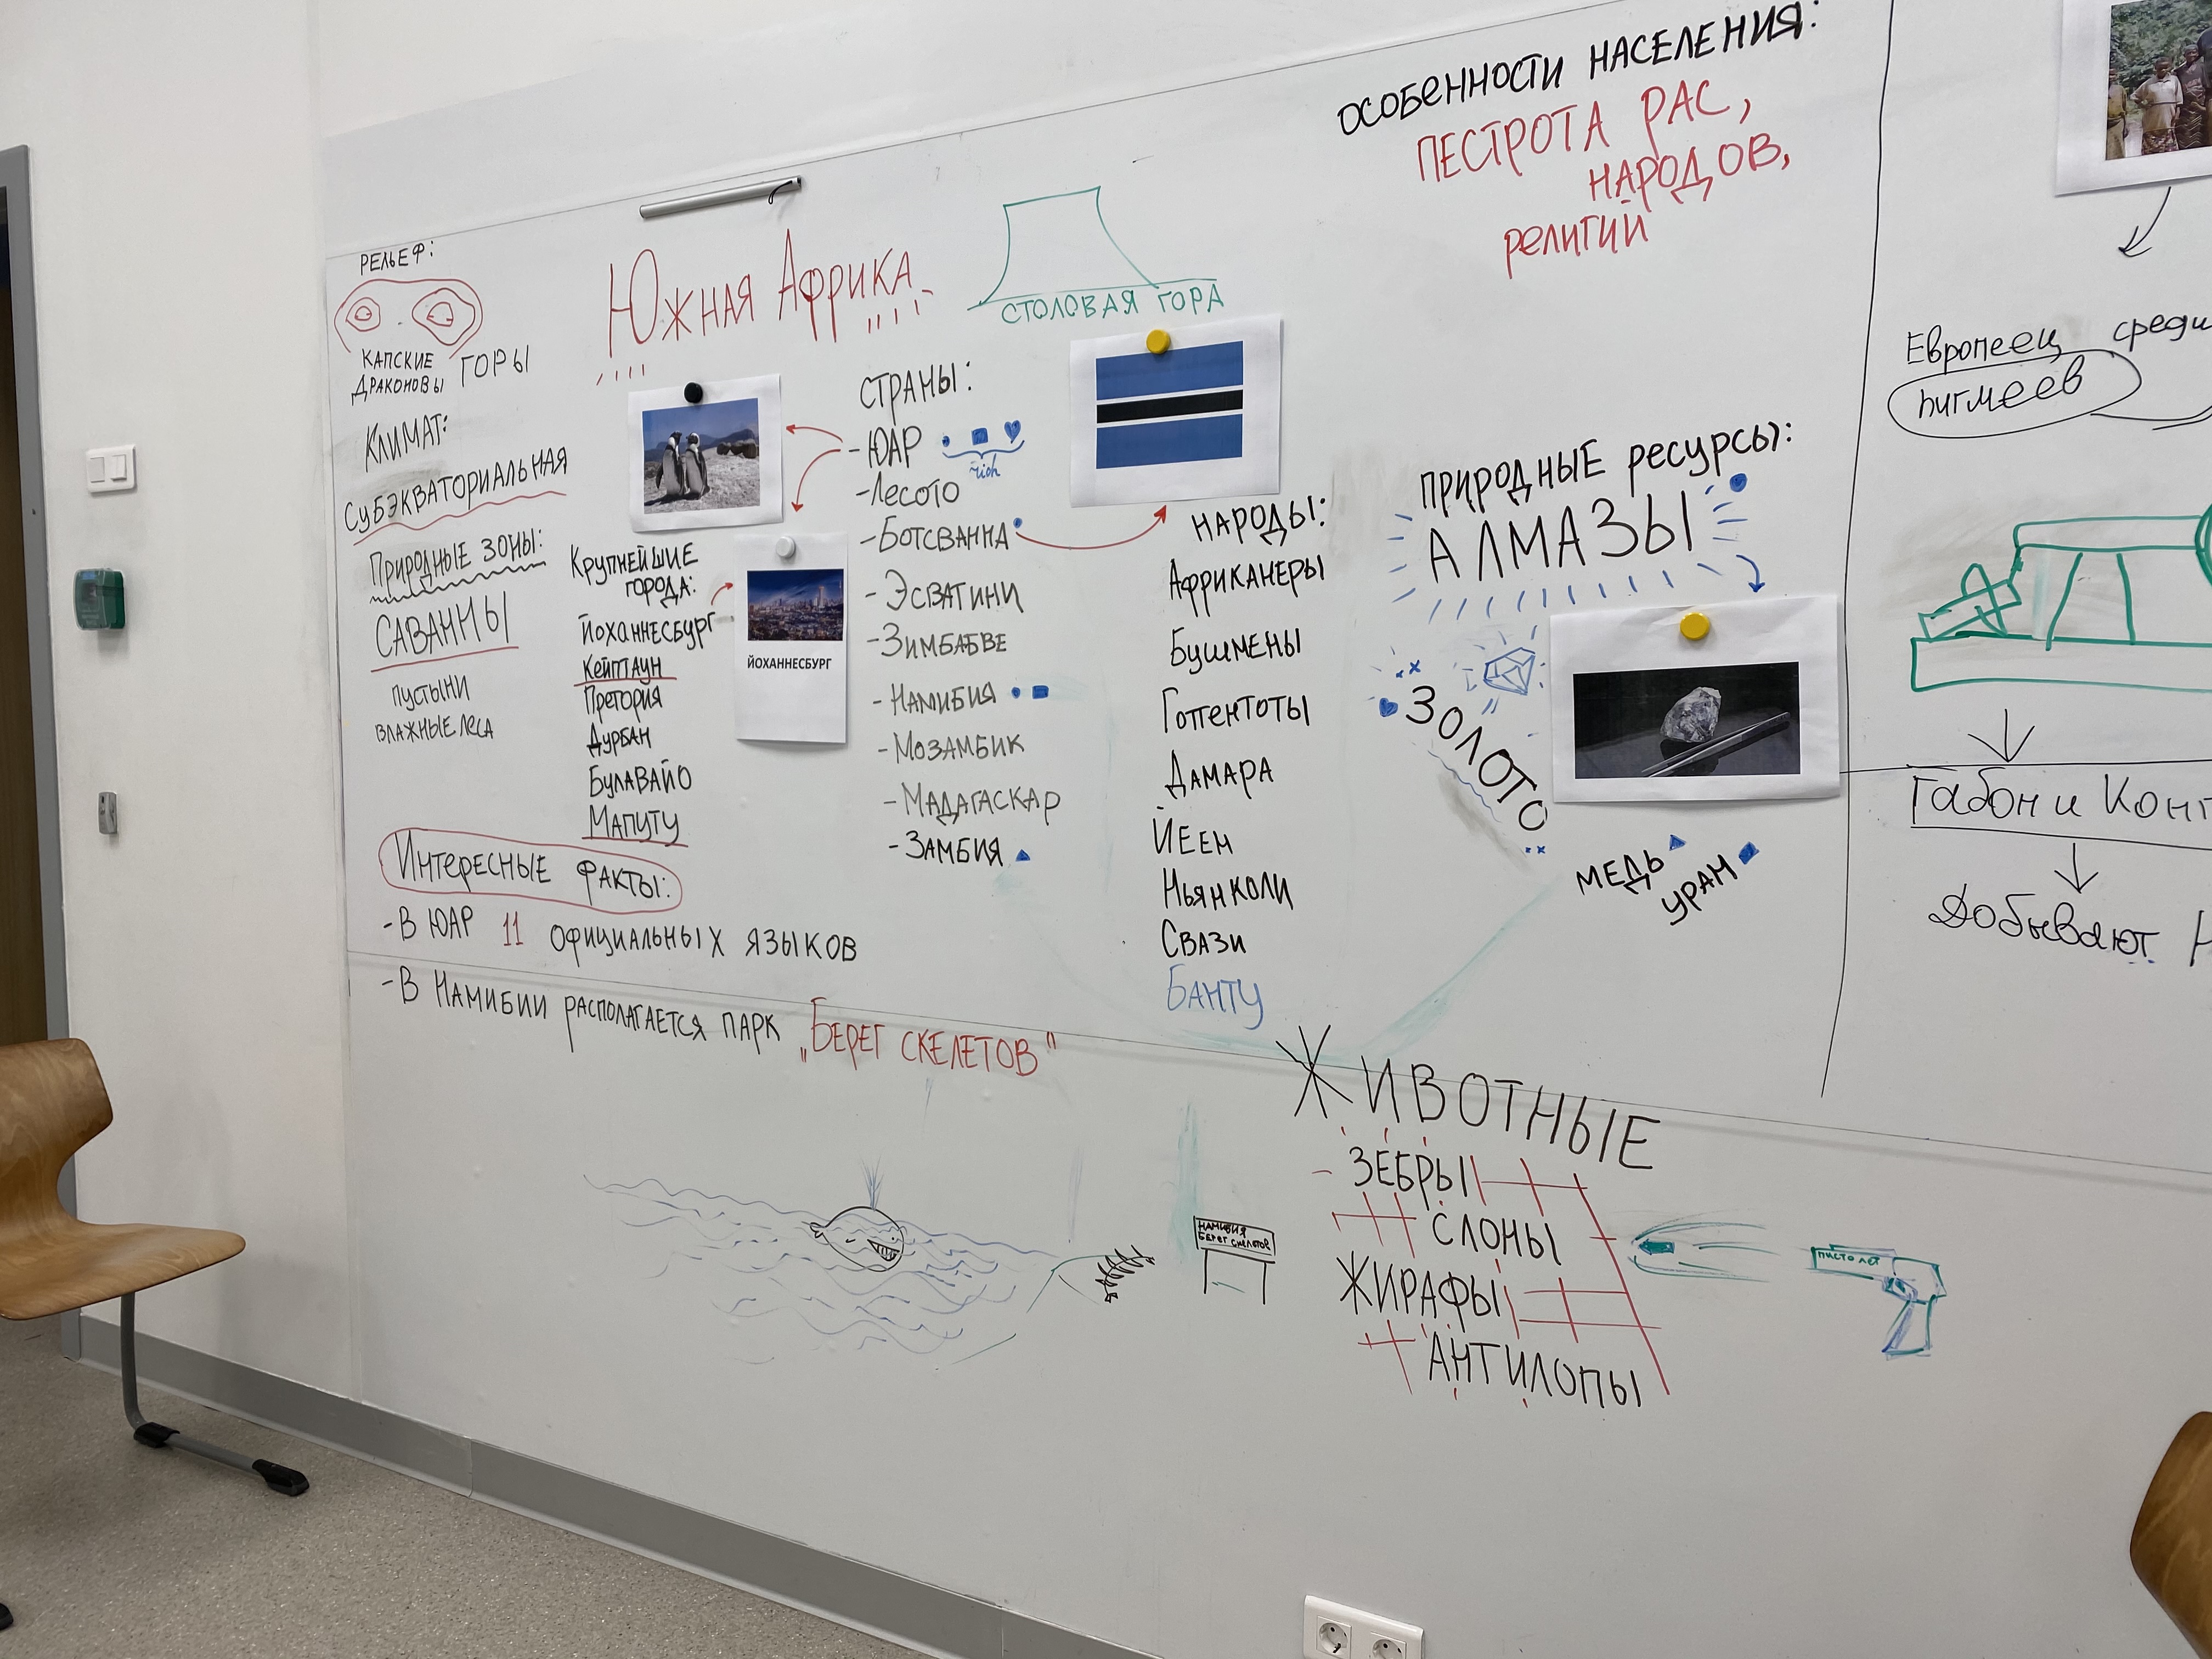 РЕЛЬЕФ:
КАПСКИЕ
ДРАКОНОВЫ
ГОРЫ
КЛИМАТ:
СУБЭКВАТОРИАЛЬНАЯ
ПРИРОДНЫЕ ЗОНЫ:
САВАННЫ
ПУСТЫНИ
ВЛАЖНЫЕ ЛЕСА
ЮЖНАЯ АФРИКА
СТОЛОВАЯ ГОРА
КРУПНЕЙШИЕ
ГОРОДА:
ЙОХАННЕСБУРГ
КЕЙПТАУН
ПРЕТОРИЯ
ДУРБАН
БУЛАВАЙО
МАПУТУ
ЙОХАННЕСБУРГ
СТРАНЫ:
- ЮАР
rich
- ЛЕСОТО
- БОТСВАННА
- ЭСВАТИНИ
- ЗИМБАБВЕ
- НАМИБИЯ
- МОЗАМБИК
- МАДАГАСКАР
- ЗАМБИЯ
НАРОДЫ:
АФРИКАНЕРЫ
БУШМЕНЫ
ГОТТЕНТОТЫ
ДАМАРА
ЙЕЕН
НЬЯНКОЛИ
СВАЗИ
БАНТУ
ОСОБЕННОСТИ НАСЕЛЕНИЯ:
ПЕСТРОТА РАС,
НАРОДОВ,
РЕЛИГИЙ
ПРИРОДНЫЕ РЕСУРСЫ:
АЛМАЗЫ
ЗОЛОТО
МЕДЬ
УРАН
ИНТЕРЕСНЫЕ ФАКТЫ:
- В ЮАР 11 ОФИЦИАЛЬНЫХ ЯЗЫКОВ
- В НАМИБИИ РАСПОЛАГАЕТСЯ ПАРК „БЕРЕГ СКЕЛЕТОВ"
НАМИБИЯ
БЕРЕГ СКЕЛЕТОВ
ЖИВОТНЫЕ
- ЗЕБРЫ
СЛОНЫ
ЖИРАФЫ
АНТИЛОПЫ
ПИСТОЛЕТ
Европеец среди
пигмеев
Габон и Конг
Добывают